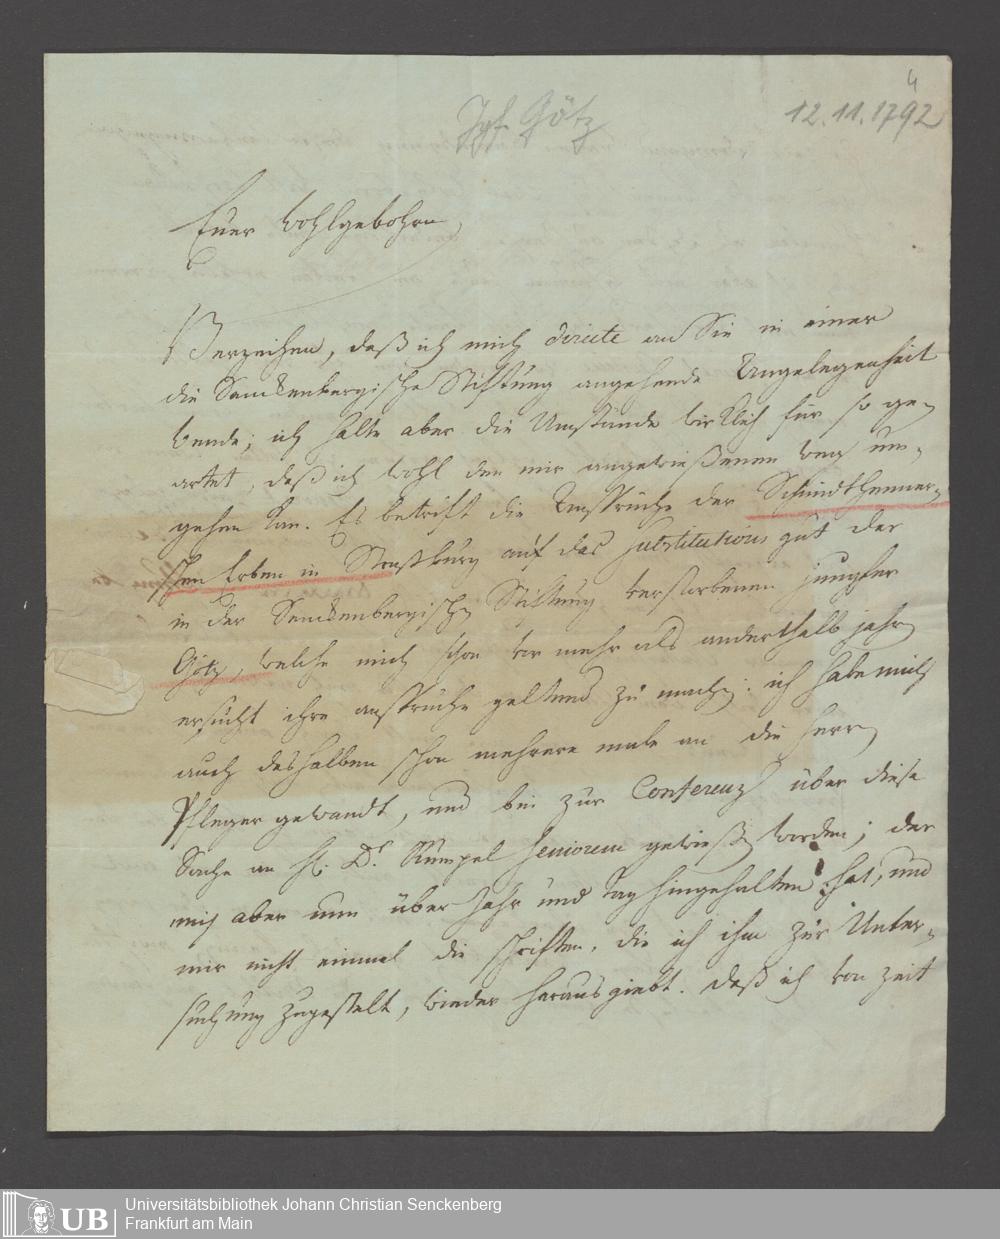 4
Jgf. Götz
12.11.1792
Euer Wohlgebohrn,
Verzeihen, daß ich mich directe an Sie in einer
die Senckenbergische Stiftung angehende Angelegenheit
wende; ich halte aber die Umstände wirklich für so ge-
artet, daß ich wohl den mir angewießenen weg um-
gehen kan. Es betrift die Ansprüche der Schmidthenner-
schen Erben in Straßburg auf das substitutions gut der
in der Senckenbergischen Stiftung verstorbenen jungfer
Götz, welche mich schon vor mehr als anderthalb jahren
ersucht ihre ansprüche geltend zu machen. ich habe mich
auch deshalben schon mehrere male an die Herrn
Pfleger gewandt, und bin zur Conferenz über diese
Sache an H. Dr. Rumpel seniorem gewießen worden; der
mich aber nun über Jahr und Tag hingehalten hat, und
mir nicht einmal die schriften, die ich ihm zur Unter-
suchung zugestelt, wieder herausgiebt. Daß ich von zeit
UB
Universitätsbibliothek Johann Christian Senckenberg
Frankfurt am Main